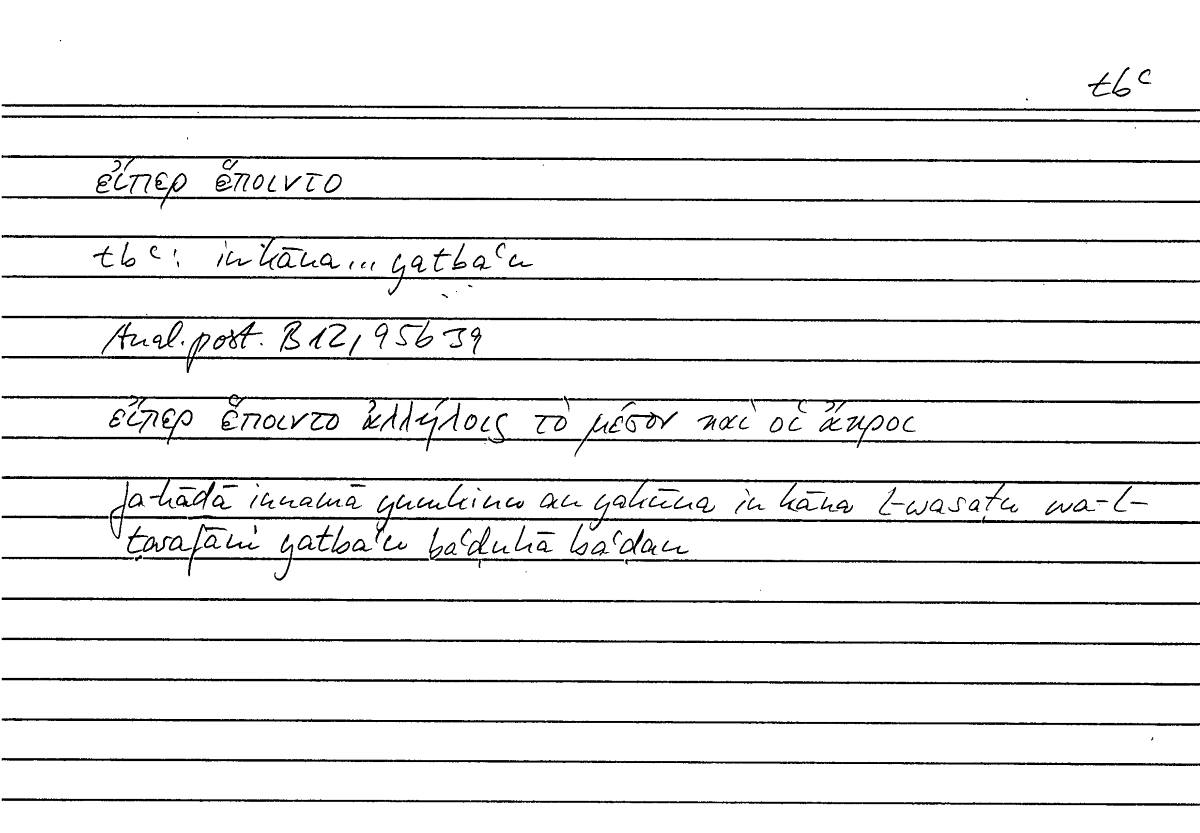 tbʿ
εἴπερ ἕποιντο
tbʿ: in kāna... yatbaʿu
Anal. post. B 12, 95b 39
εἴπερ ἕποιντο ἀλλήλοις τὸ μέσον καὶ οἱ ἄκροι
fa-hāḏā innamā yumkinu an yakūna in kāna l-wasaṭu wa-l-
ṭarafāni yatbaʿu baʿḍuhā baʿḍan